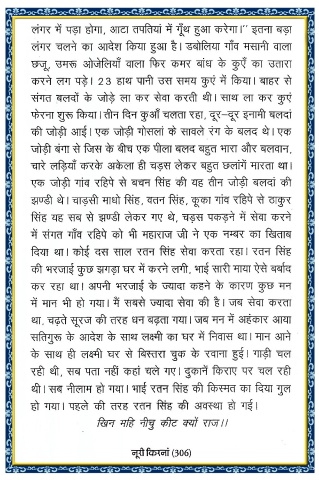 लंगर में पड़ा होगा, आटा तपतियां में गूँथ हुआ करेगा।'' इतना बड़ा
लंगर चलने का आदेश किया हुआ है। डबोलिया गाँव मसानी वाला
छजू, उमरू ओजेलियाँ वाला फिर कमर बांध के कुएँ का उतारा
करने लग पड़े। 23 हाथ पानी उस समय कुएं में किया। बाहर से
संगत बलदों के जोड़े ला कर सेवा करती थी। साथ ला कर कुएं
फेरना शुरू किया। तीन दिन कुआँ चलता रहा, दूर-दूर इनामी बलदां
की जोड़ी आई। एक जोड़ी गोसलां के सावले रंग के बलद थे। एक
जोड़ी बंगा से जिस के बीच एक पीला बलद बहुत भारा और बलवान,
चारे लड़ियाँ करके अकेला ही चड़स लेकर बहुत छलांगें मारता था।
एक जोड़ी गांव रहिपे से बचन सिंह की यह तीन जोड़ी बलदां की
झण्डी थे। चाड़सी माधो सिंह, वतन सिंह, कूका गांव रहिपे से ठाकुर
सिंह यह सब से झण्डी लेकर गए थे, चड़स पकड़ने में सेवा करने
में संगत गाँव रहिपे को भी महाराज जी ने एक नम्बर का खिताब
दिया था। कोई दस साल रतन सिंह सेवा करता रहा। रतन सिंह
की भरजाई कुछ झगड़ा घर में करने लगी, भाई सारी माया ऐसे बर्बाद
कर रहा था। अपनी भरजाई के ज्यादा कहने के कारण कुछ मन
में मान भी हो गया। मैं सबसे ज्यादा सेवा की है। जब सेवा करता
था, चढ़ते सूरज की तरह धन बढ़ता गया। जब मन में अहंकार आया
सतिगुरू के आदेश के साथ लक्ष्मी का घर में निवास था। मान आने
के साथ ही लक्ष्मी घर से बिस्तरा चुक के रवाना हुई। गाड़ी चल
रही थी, सब पता नहीं कहां चले गए। दुकानें किराए पर चल रही
थी। सब नीलाम हो गया। भाई रतन सिंह की किस्मत का दिया गुल
हो गया। पहले की तरह रतन सिंह की अवस्था हो गई।
खिन महि नीचु कीट क्यों राज।।
नूरी किरनां (306)